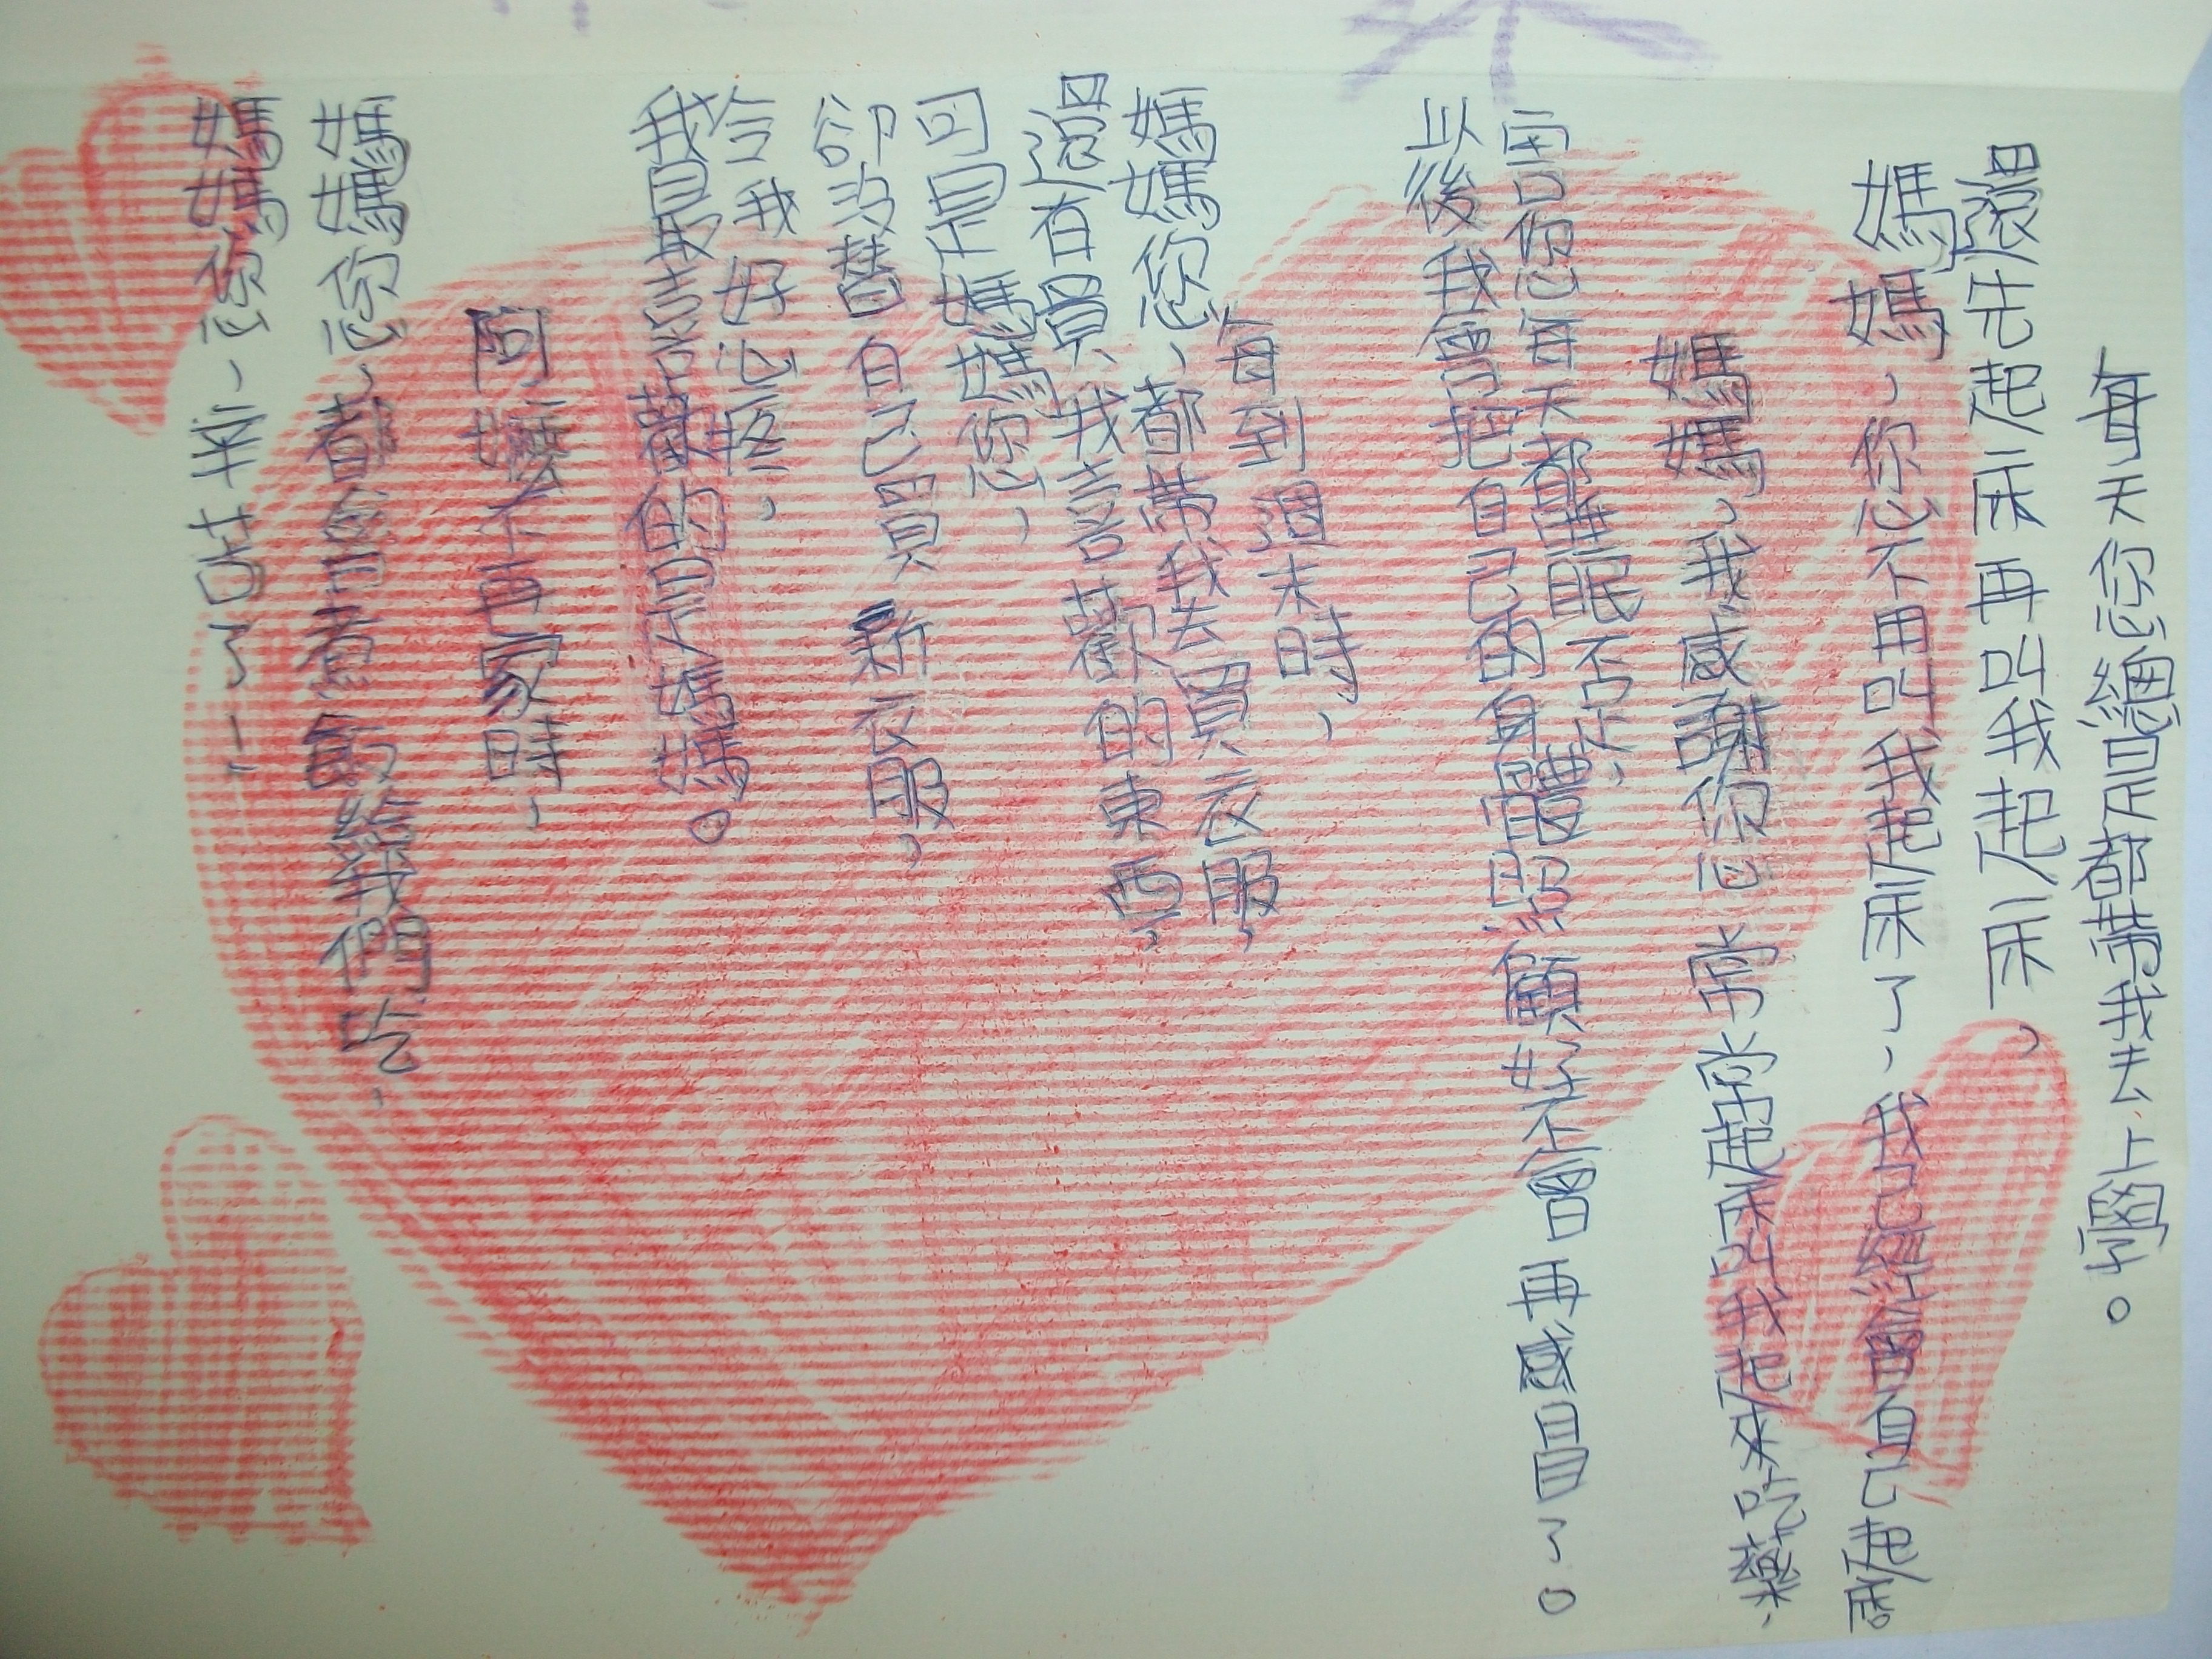 每天您總是都帶我去上學。
還先起床再叫我起床，
媽媽，您不用叫我起床了，我已經會自己起床
媽媽，我感謝您常常起床叫我起來吃藥，
害您每天都睡眠不足，
以後我會把自己的身體照顧好不會再感冒了。
每到週末時，
媽媽您，都帶我去買衣服，
還有買我喜歡的東西，
可是媽媽您，
卻沒替自己買新衣服，
令我好心疼，
我最喜歡的是媽媽。
阿嬤不再家時，
媽媽您，都會煮飯給我們吃，
媽媽您，辛苦了！